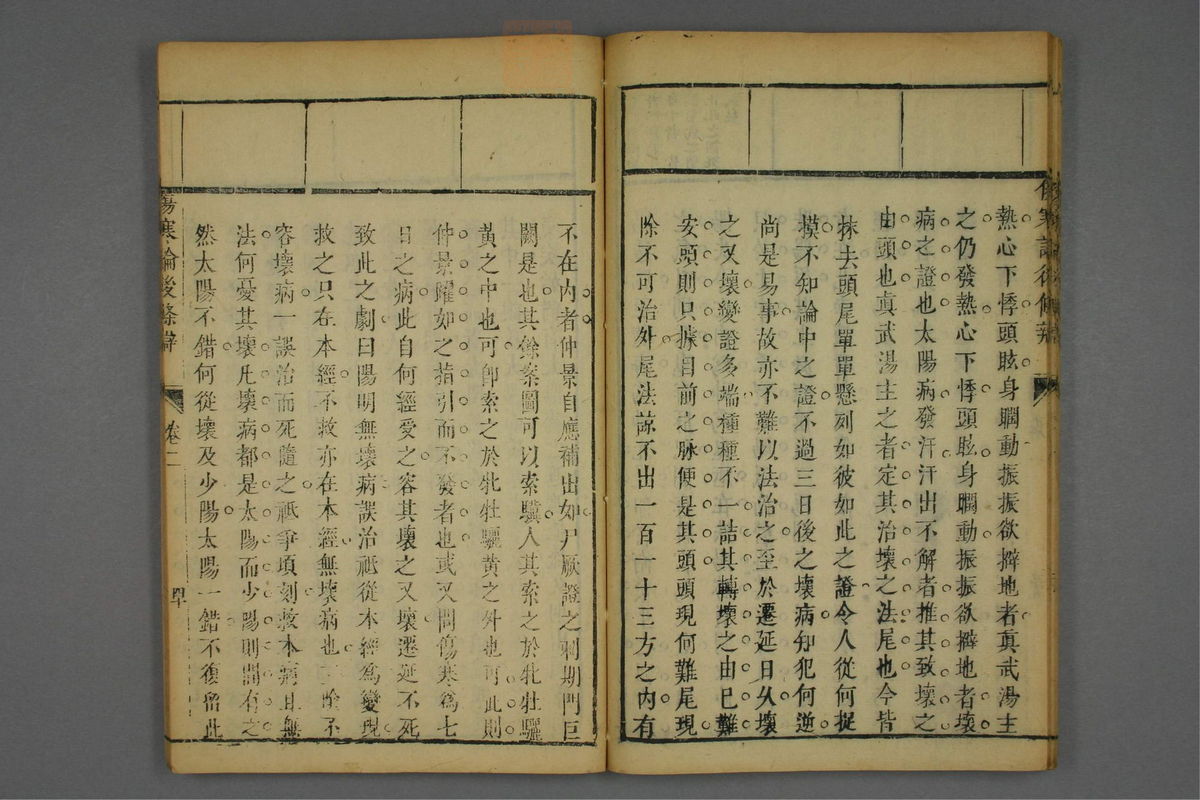 熱心下悸頭眩身瞤動振振欲擗地者真武湯主
之仍發熱心下悸頭眩身瞤動振振欲擗地者壞
病之證也太陽病發汗汗出不解者推其致壞之
由頭也真武湯主之者定其治壞之法尾也今皆
抹去頭尾單單懸列如彼如此之證令人從何捉
摸不知論中之證不過三日後之壞病知犯何逆
尚是易事故亦不難以法治之至於遷延日久壞
之又壞變證多端種種不一詰其轉壞之由已難
安頭則只據目前之脉便是其頭頭現何難尾現
除不可治外尾法諒不出一百一十三方之內有
不在內者仲景自應補出如尸厥證之刺期門巨
闕是也其餘案圖可以索驥人其索之於牝牡驪
黃之中也可卽索之於牝牡驪黃之外也可此則
仲景躍如之指引而不發者也或又問傷寒爲七
日之病此自何經受之容其壞之又壞遷延不死
致此之劇曰陽明無壞病誤治祗從本經爲變現
救之只在本經不救亦在本經無壞病也三陰不
容壞病一誤治而死隨之祗爭頃刻救本病且無
法何憂其壞凡壞病都是太陽而少陽則間有之
然太陽不錯何從壞及少陽太陽一錯不復留此
傷寒論後條辯
卷二
四十